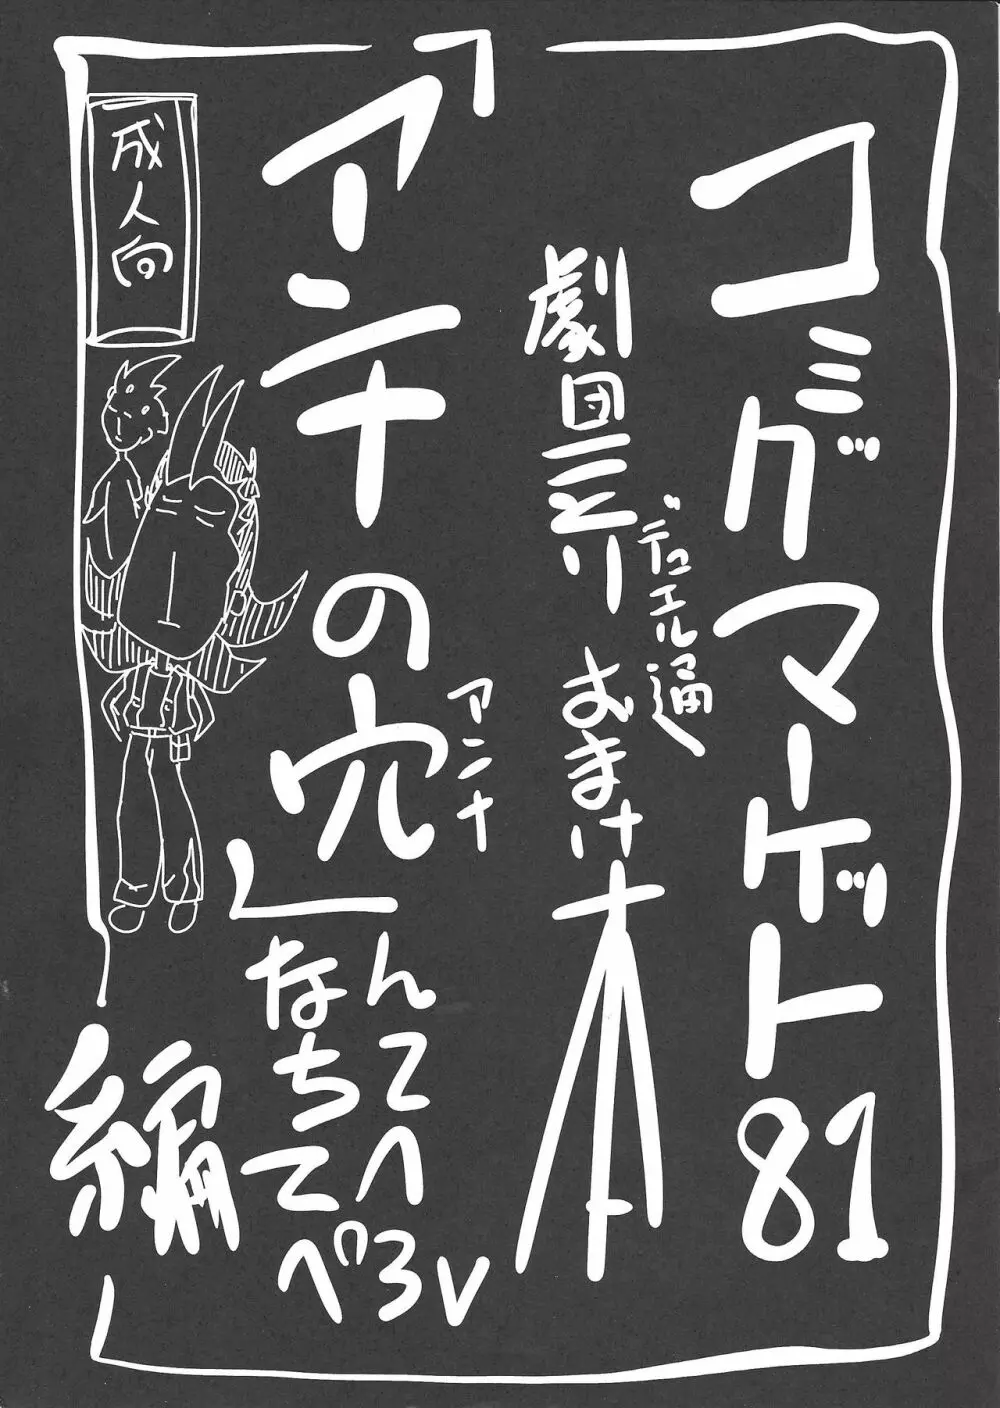 コミックマーケット81
劇団
デュエル通り
おまけ本
「アンチの穴」
アンナ
なん
ちて
てへ
ぺろv
編
成人向